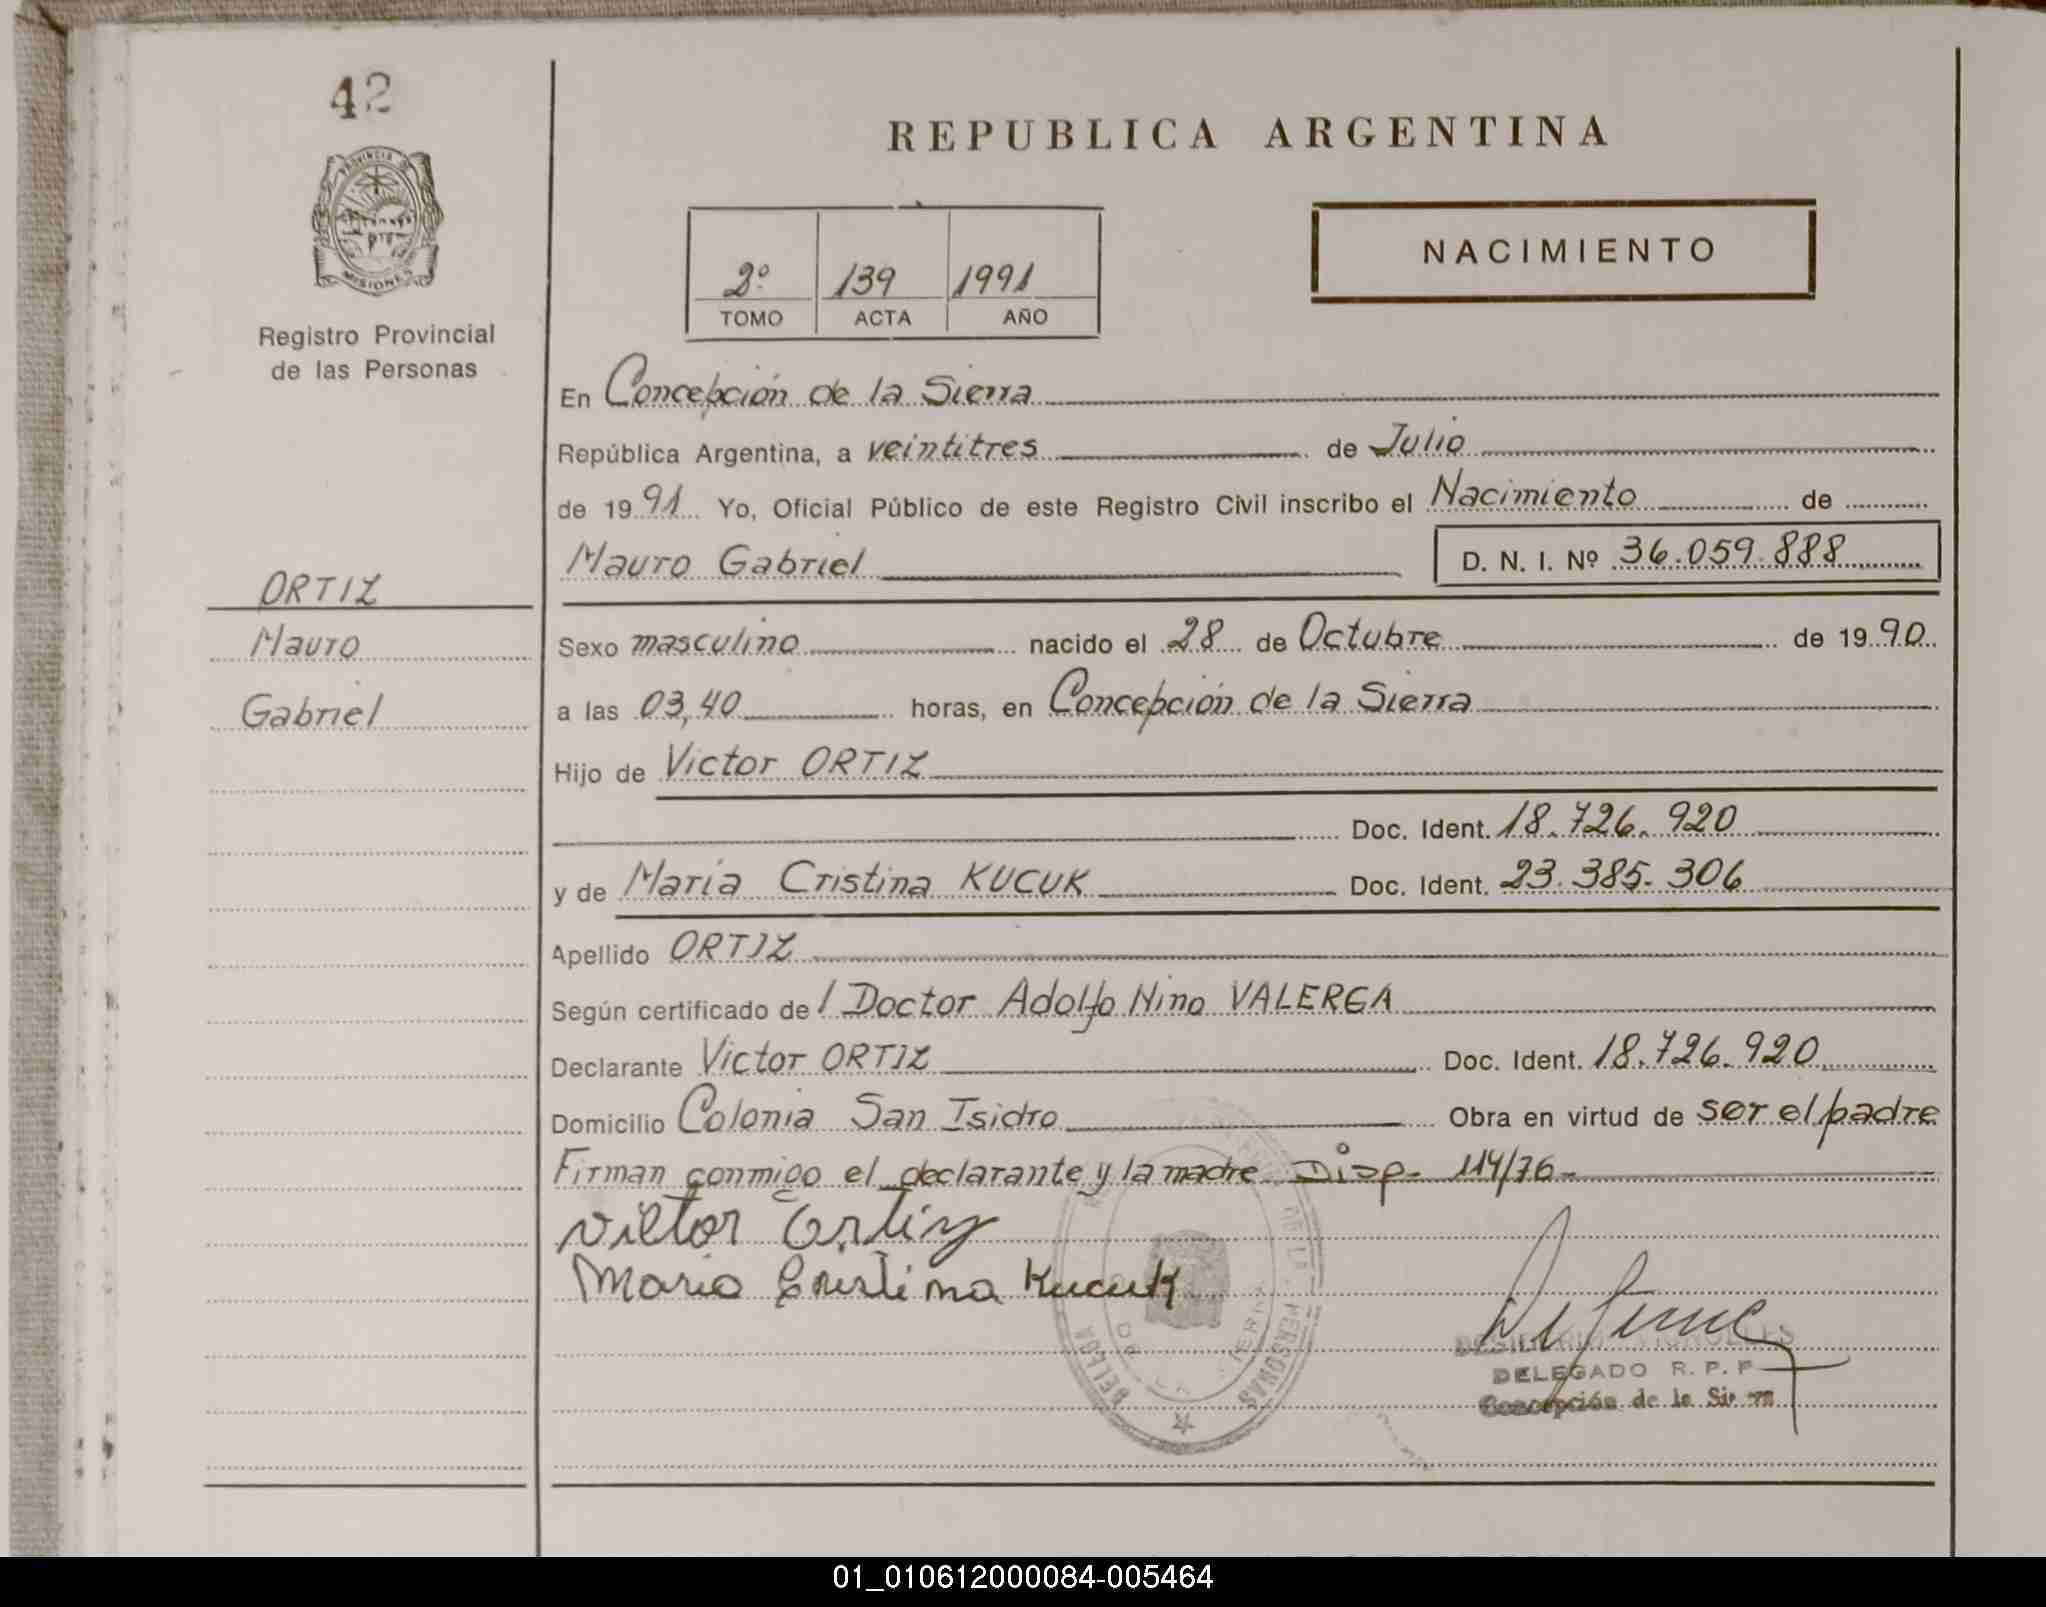 42
PROVINCIA DE
MISIONES
Registro Provincial
de las Personas
ORTIZ
Mauro
Gabriel
REPUBLICA ARGENTINA
2º 139 1991
TOMO ACTA AÑO
NACIMIENTO
En Concepción de la Sierra
República Argentina, a veintitres de Julio
de 1991 Yo, Oficial Público de este Registro Civil inscribo el Nacimiento de
Mauro Gabriel D. N. I. Nº 36.059.888
Sexo masculino nacido el 28 de Octubre de 1990
a las 03,40 horas, en Concepción de la Sierra
Hijo de Victor ORTIZ
Doc. Ident. 18.726.920
y de María Cristina KUCUK Doc. Ident. 23.385.306
Apellido ORTIZ
Según certificado de l Doctor Adolfo Nino VALERGA
Declarante Victor ORTIZ Doc. Ident. 18.726.920
Domicilio Colonia San Isidro Obra en virtud de ser el padre
Firman conmigo el declarante y la madre Disp. 114/76-
Victor Ortiz
Maria Cristina Kucuk
DE LAS PERSONAS
DELEGADO R. P. P
Concepción de la Sierra
01_010612000084-005464